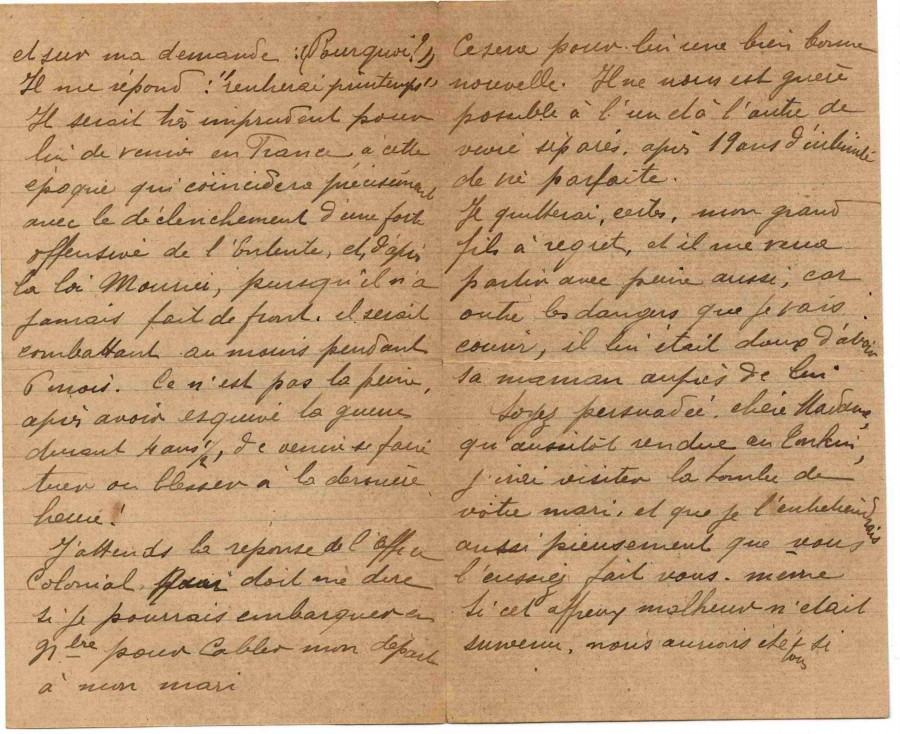 et sur ma demande : (Pourquoi ?)
Il me répond : "rentrerai printemps"
Il serait très imprudent pour
lui de venir en France à cette
époque qui coïncidera précisément
avec le déclenchement d'une forte
offensive de l'Entente, et, d'après
la loi Mourier, puisqu'il n'a
jamais fait de front. il serait
combattant au moins pendant
6 mois. Ce n'est pas la peine,
après avoir esquivé la guerre
durant 4 ans 1/2, de venir se faire
tuer ou blesser à la dernière
heure !
J'attends la réponse de l'office
Colonial qui doit me dire
si je pourrais embarquer en
9bre pour cabler mon départ
à mon mari
Ce sera pour lui une bien bonne
nouvelle. Il ne nous est guère
possible à l'un et à l'autre de
vivre séparés, après 19 ans d'intimité
de vie parfaite.
Je quitterai, certes, mon grand
fils à regret, et il me verra
partir avec peine aussi, car
outre les dangers que je vais
courir, il lui était doux d'avoir
sa maman auprès de lui
Soyez persuadée, chère Madame,
qu'aussitôt rendue au Tonkin,
j'irai visiter la tombe de
votre mari, et que je l'entretiendrais
aussi pieusement que vous
l'eussiez fait vous-même
Si cet affreux malheur n'était
survenu, nous aurions été tous si